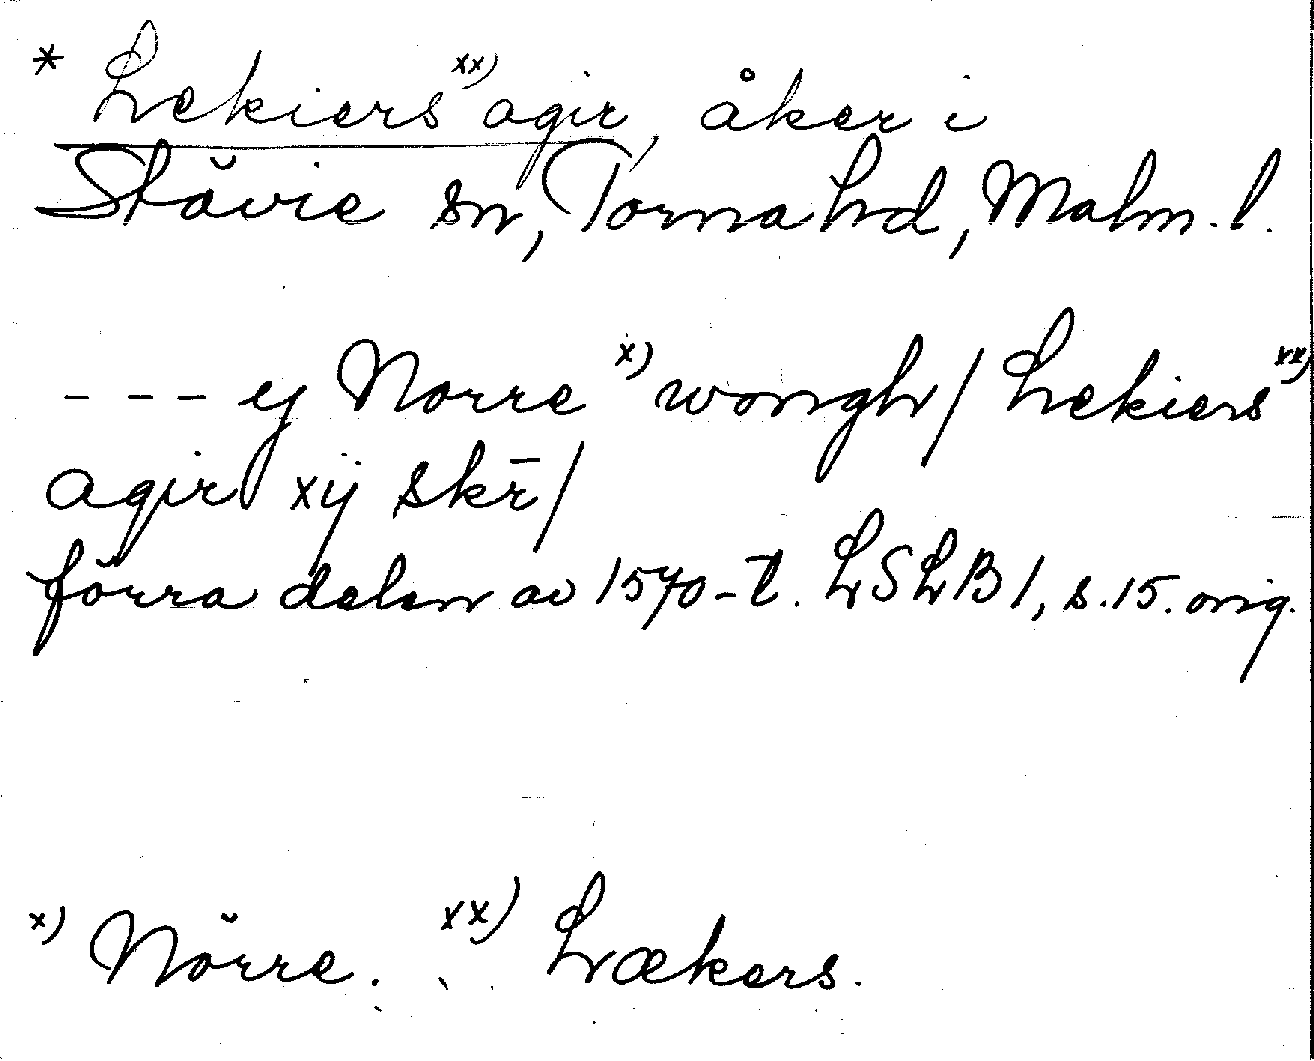 * Lekiers xx) agir, åker i
Stävie sn, Torna hd, Malm. l.
--- ej Norre x) wongh/ Lekiers xx)
agir xij skr̄/
förra delen av 1570-t. LSLB1, s. 15. orig.
x) Nörre. xx) Lækers.